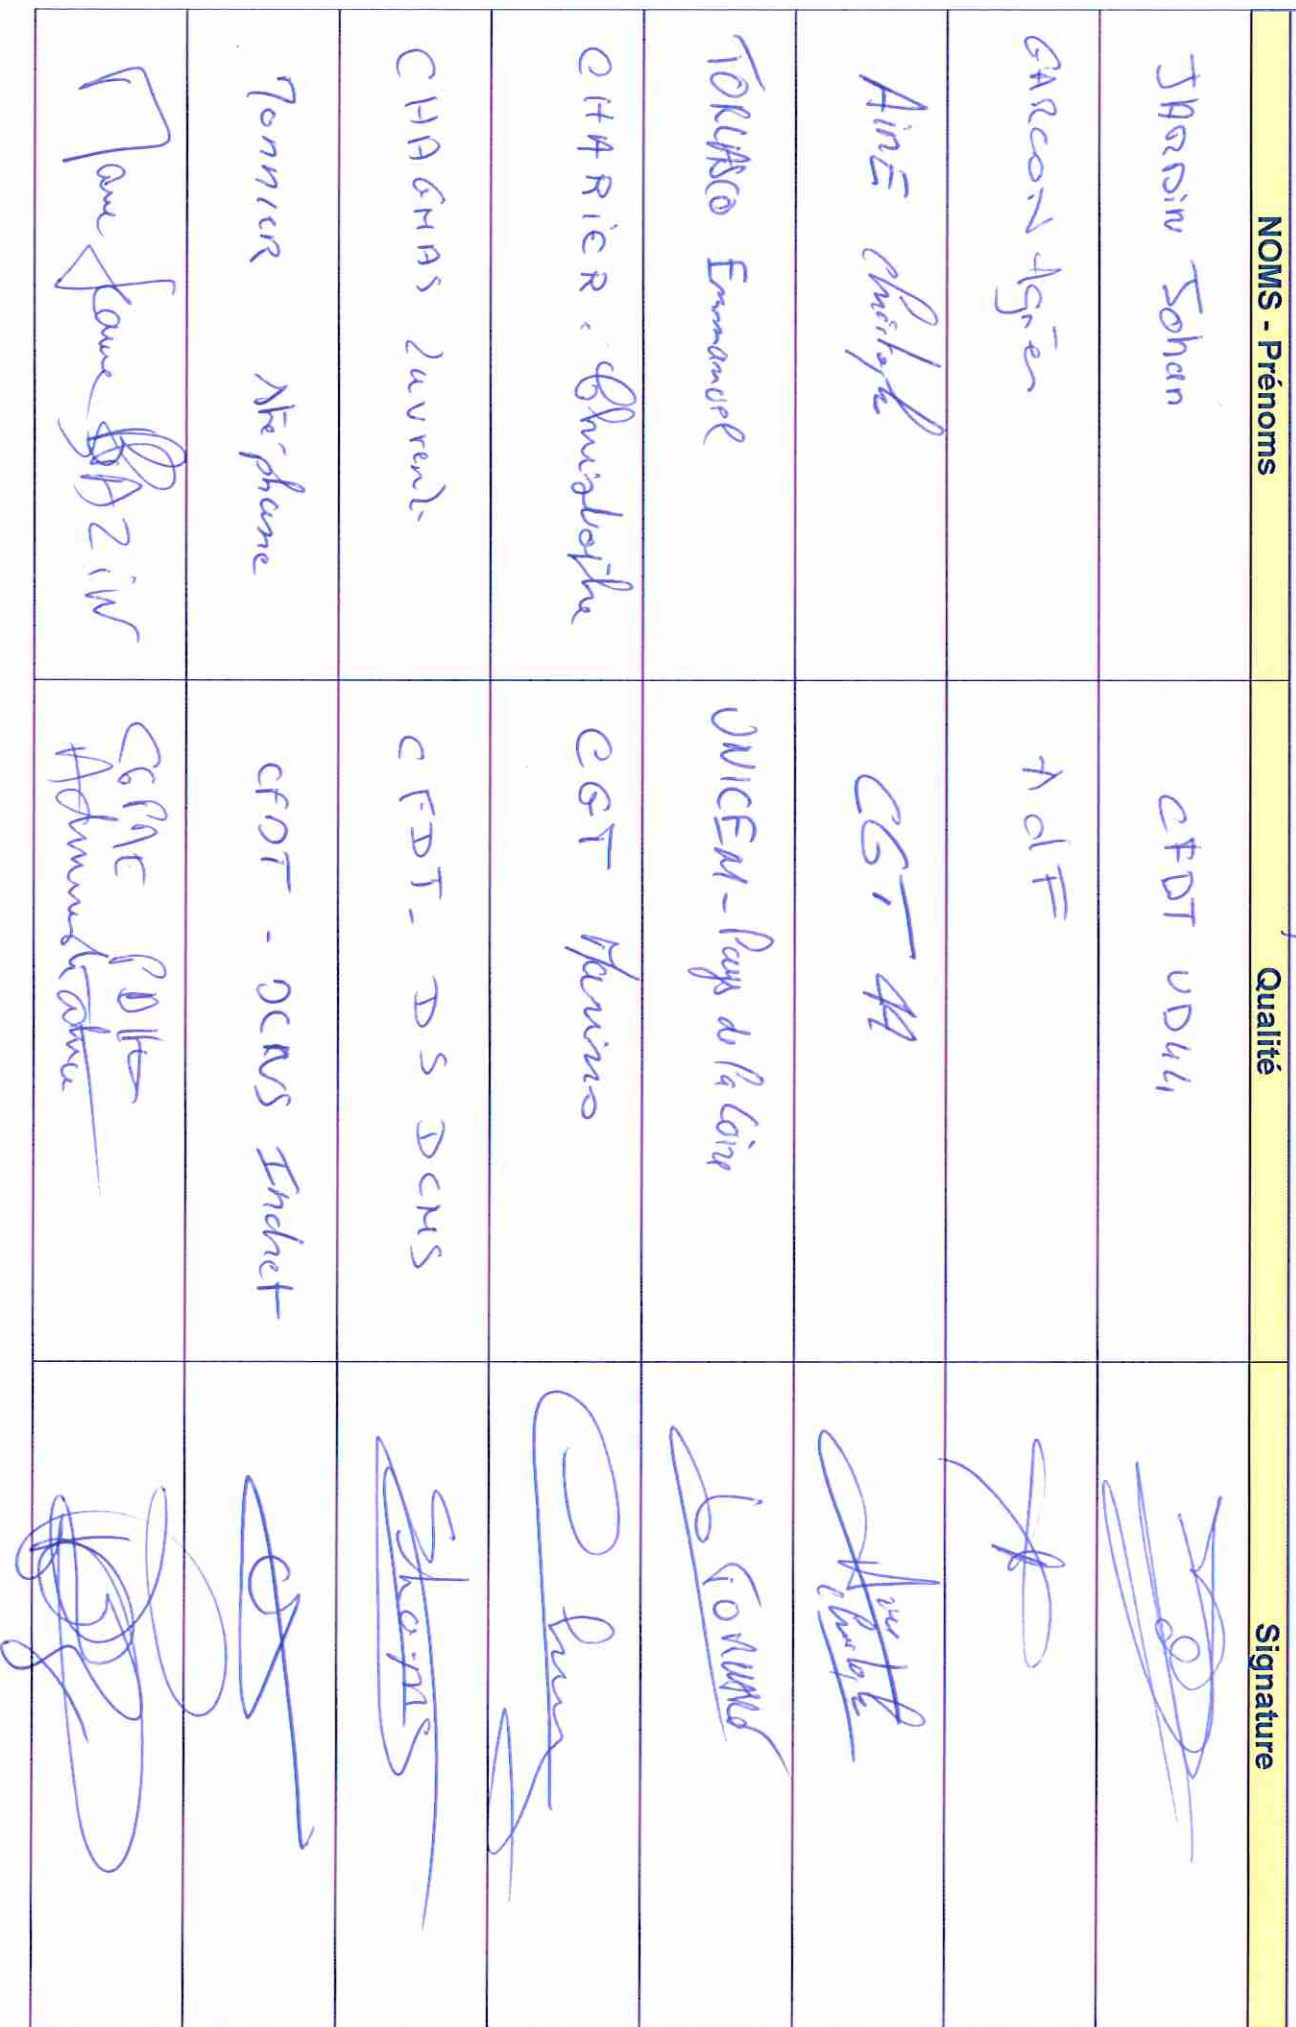 NOMS - Prénoms Qualité Signature
JARDIN Johan CFDT UD44
GARCON Agnès AdF
AiMÉ Christophe CGT 44
TORLASCO Emmanuel UNICEM - Pays de la Loire
CHARiER Christophe CGT Marine
CHAGNAS Laurent CFDT - DS DCNS
Monnier Stéphane CFDT - DCNS Indret
Marie Jeanne BAZiN CGPME
Administrateur